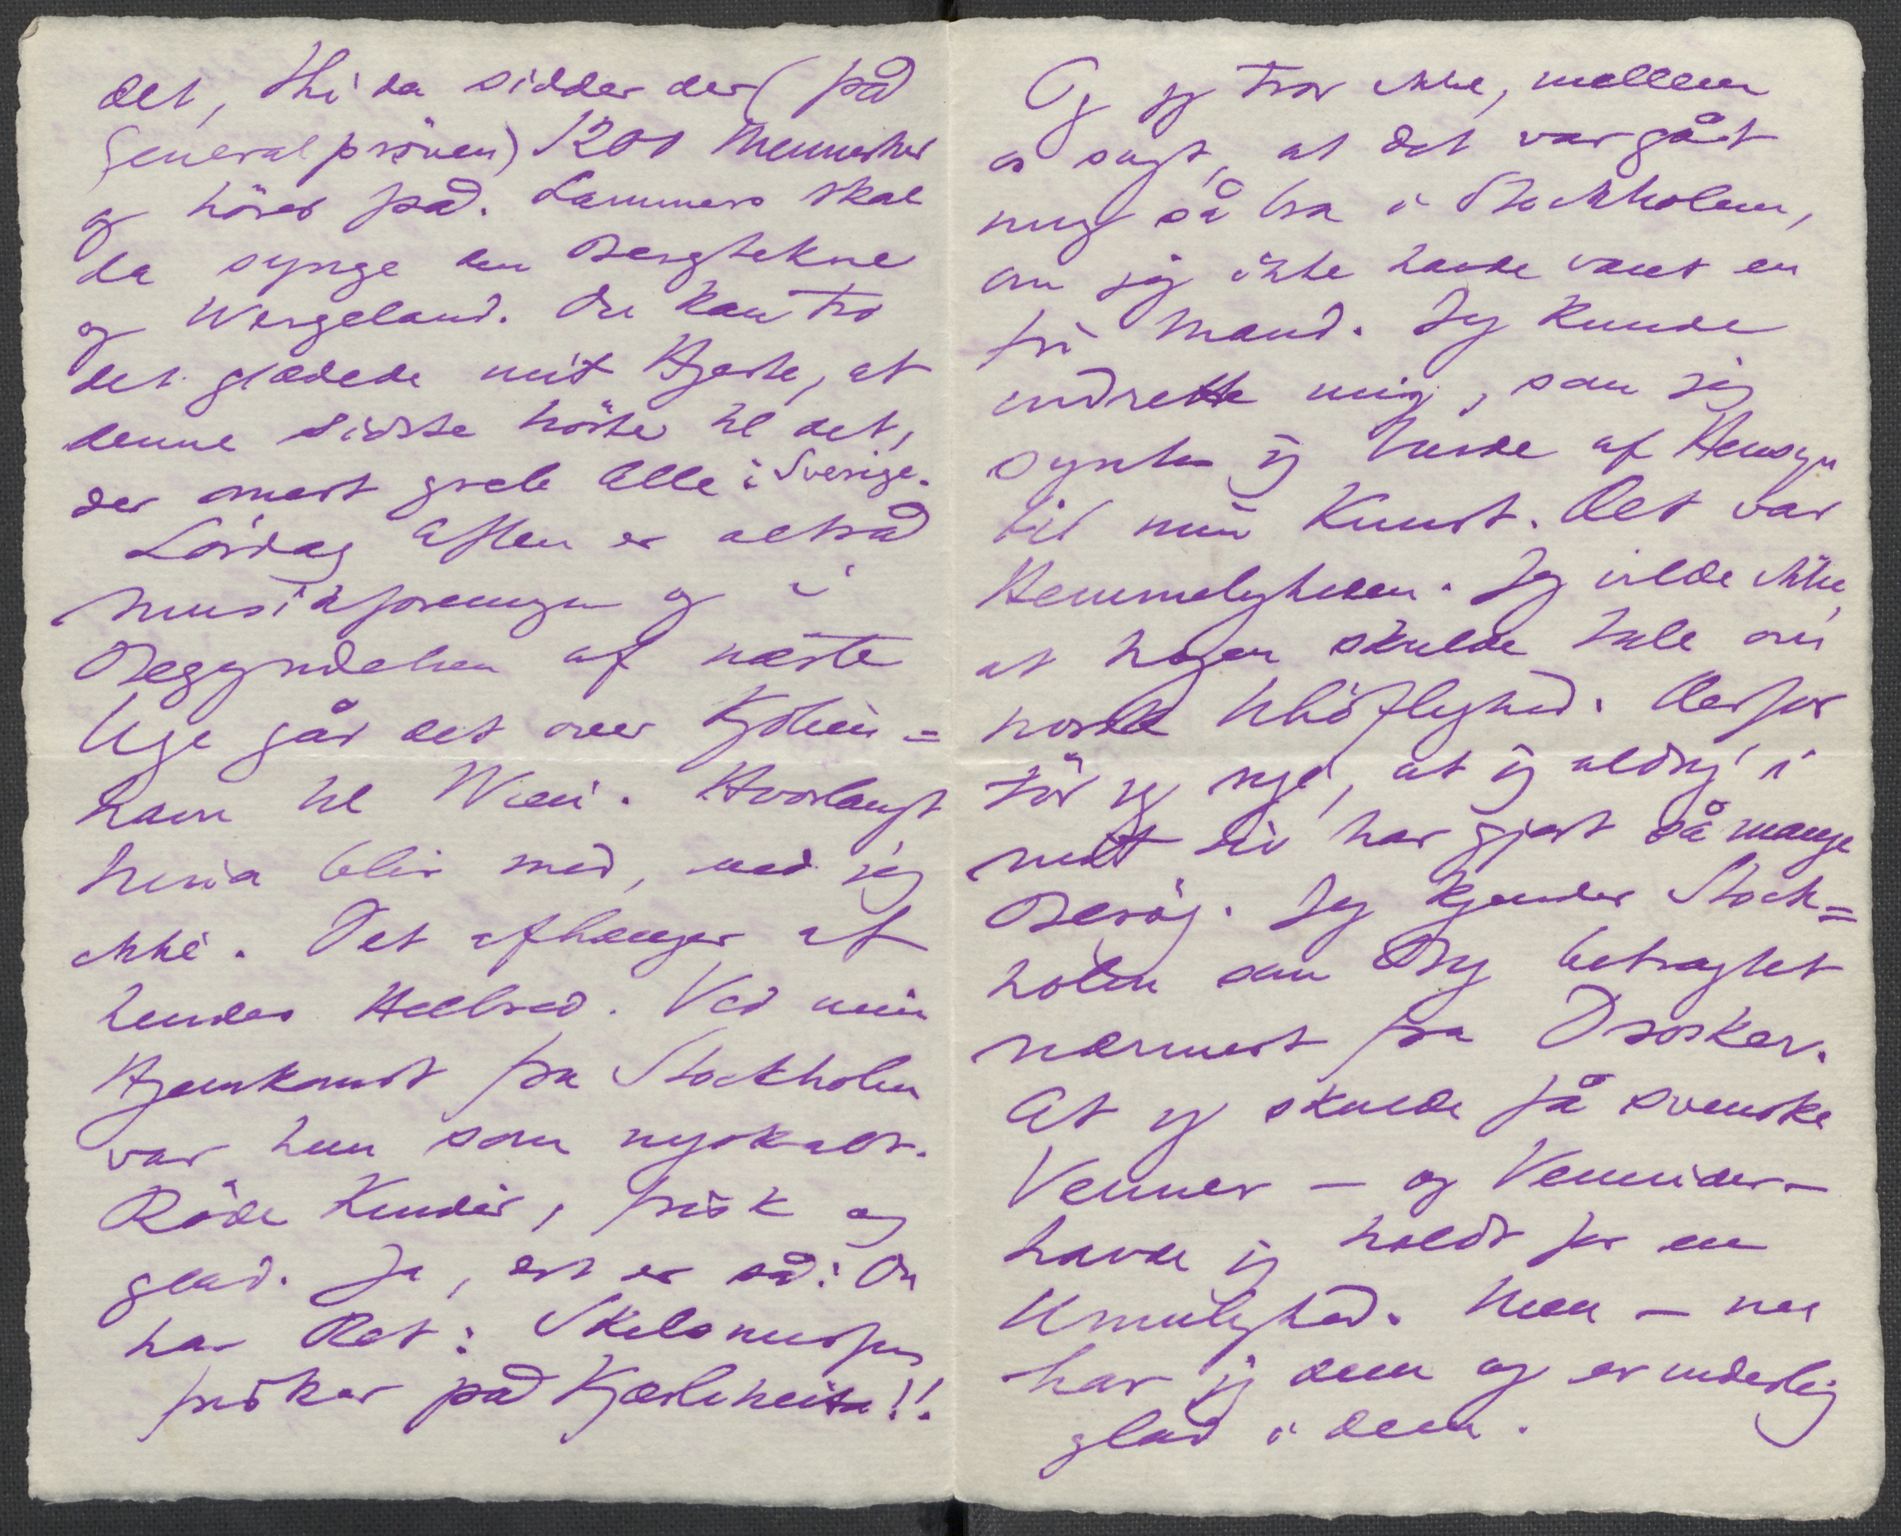 det, thi da sidder der (på
Generalprøven) 1200 Mennesker
og hører på. Lammers skal
da synge den Bergtekne
og Wergeland. Du kan tro
det glædede mit Hjerte, at
denne sidste hörte til det,
der mest greb Alle i Sverige.
Lördag Aften er altså
Musikforeningen og i
Begyndelsen af næste
Uge går det over Kjöben=
havn til Wien. Hvorlangt
Nina blir med, ved jeg
ikke. Det afhænger af
hendes Helbred. Ved min
Hjemkomst fra Stockholm
var hun som nyskabt.
Röde Kinder, frisk og
glad. Ja, det er så: Du
har Ret: Skilsmissen
frisker på Kjærligheden!!
Og jeg tror ikke, mellem
os sagt, at det var gået
mig så bra i Stockholm,
om jeg ikke havde været en
fri Mand. Jeg kunde
indrette mig, som jeg
syntes jeg burde af Hensyn
til min Kunst. Det var
Hemmeligheden. Jeg vilde ikke,
at nogen skulde tale om
norsk Uhöflighed. Derfor
tör jeg sige, at jeg aldrig i
mit Liv har gjort så mange
Besög. Jeg kjender Stock=
holm som By betragtet
nærmest fra Drosker.
At jeg skulde få svenske
Venner – og Veninder –
havde jeg holdt for en
Umulighed. Men – nu
har jeg dem og er inderlig
glad i dem.